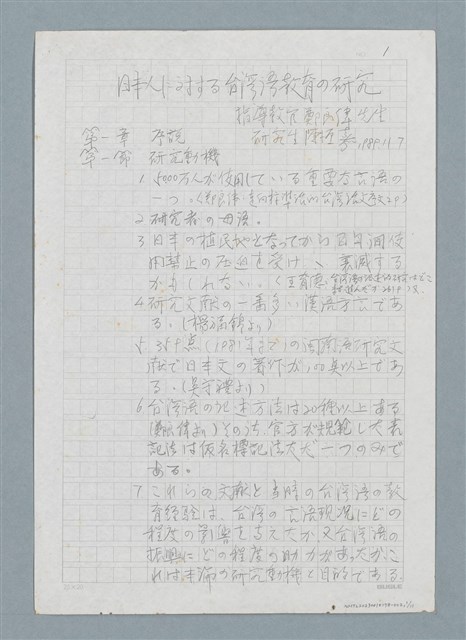 1
日本人に対する台湾語教育の研究
指導教官 鄭良偉先生
研究生 陳恒嘉 1989.11.7
第一章 序説
第一節 研究動機
1 5000万人が使用している重要な言語の
一つ。(鄭良偉
2 研究者の母語。
3 日本の植民地となってから百年間使
用禁止の圧迫を受け、衰滅する
かもしれない。(王育徳
4 研究文献の一番多い漢語方言であ
る。(楊
5 359点(1981年まで)の閩南語研究文
献で日本文の著作が100点以上であ
る。(呉守礼より)
6 台湾語の記述方法は20種以上ある
(鄭良偉より)そのうち官方が規範した表
記法は仮名標記法ただ一つのみで
ある。
7 これらの文献と当時の台湾語の教
育経験は、台湾の言語現況にどの
程度の影響を与えたか又台湾語の
振興にどの程度の助力があったかこ
れは本論の研究動機と目的である。